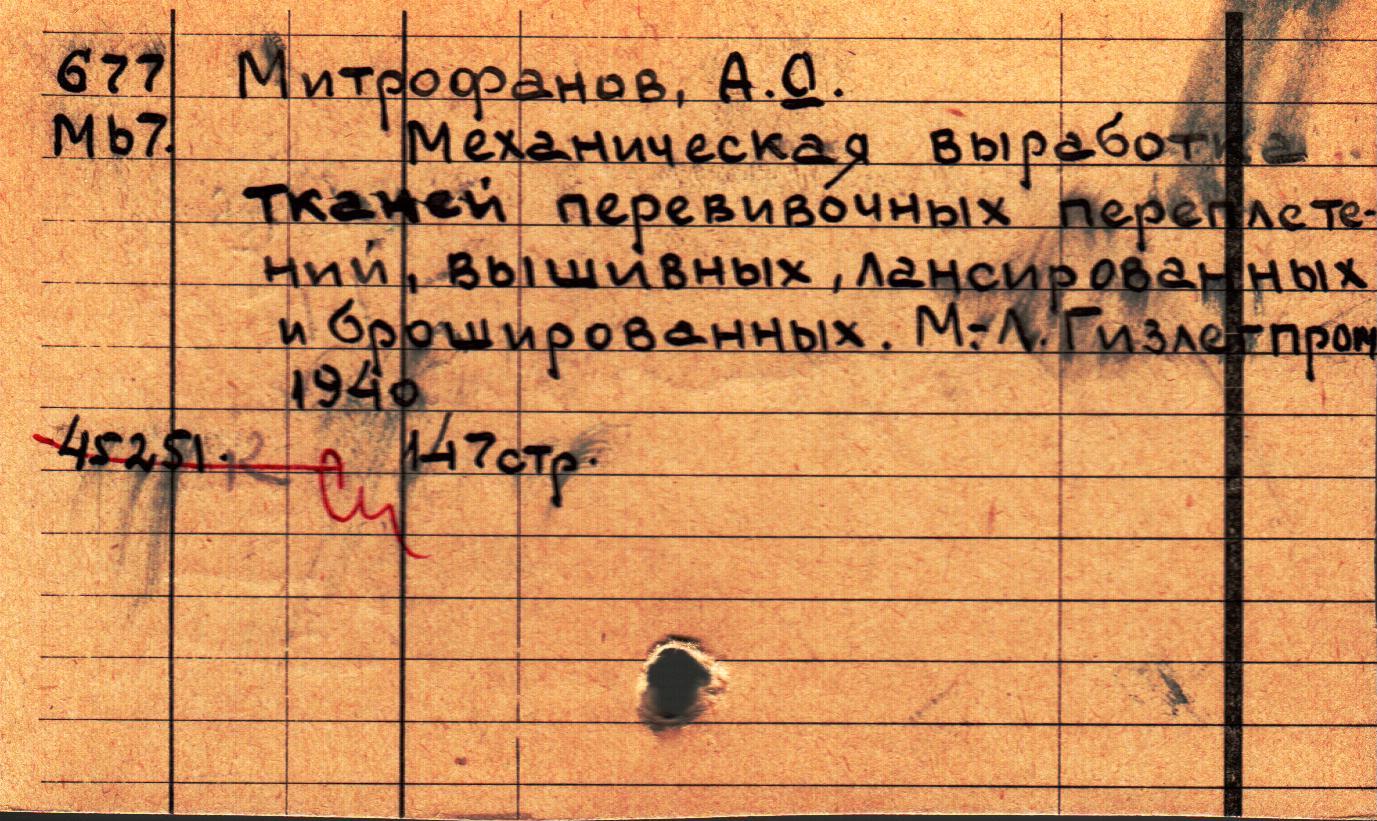 677 Митрофанов, А.О.
Мb7. Механическая выработка
тканей перевивочных переплете-
ний, вышивных, лансированных
и брошированных. М.-Л. Гизлегпром
1940
45251. 147 стр.